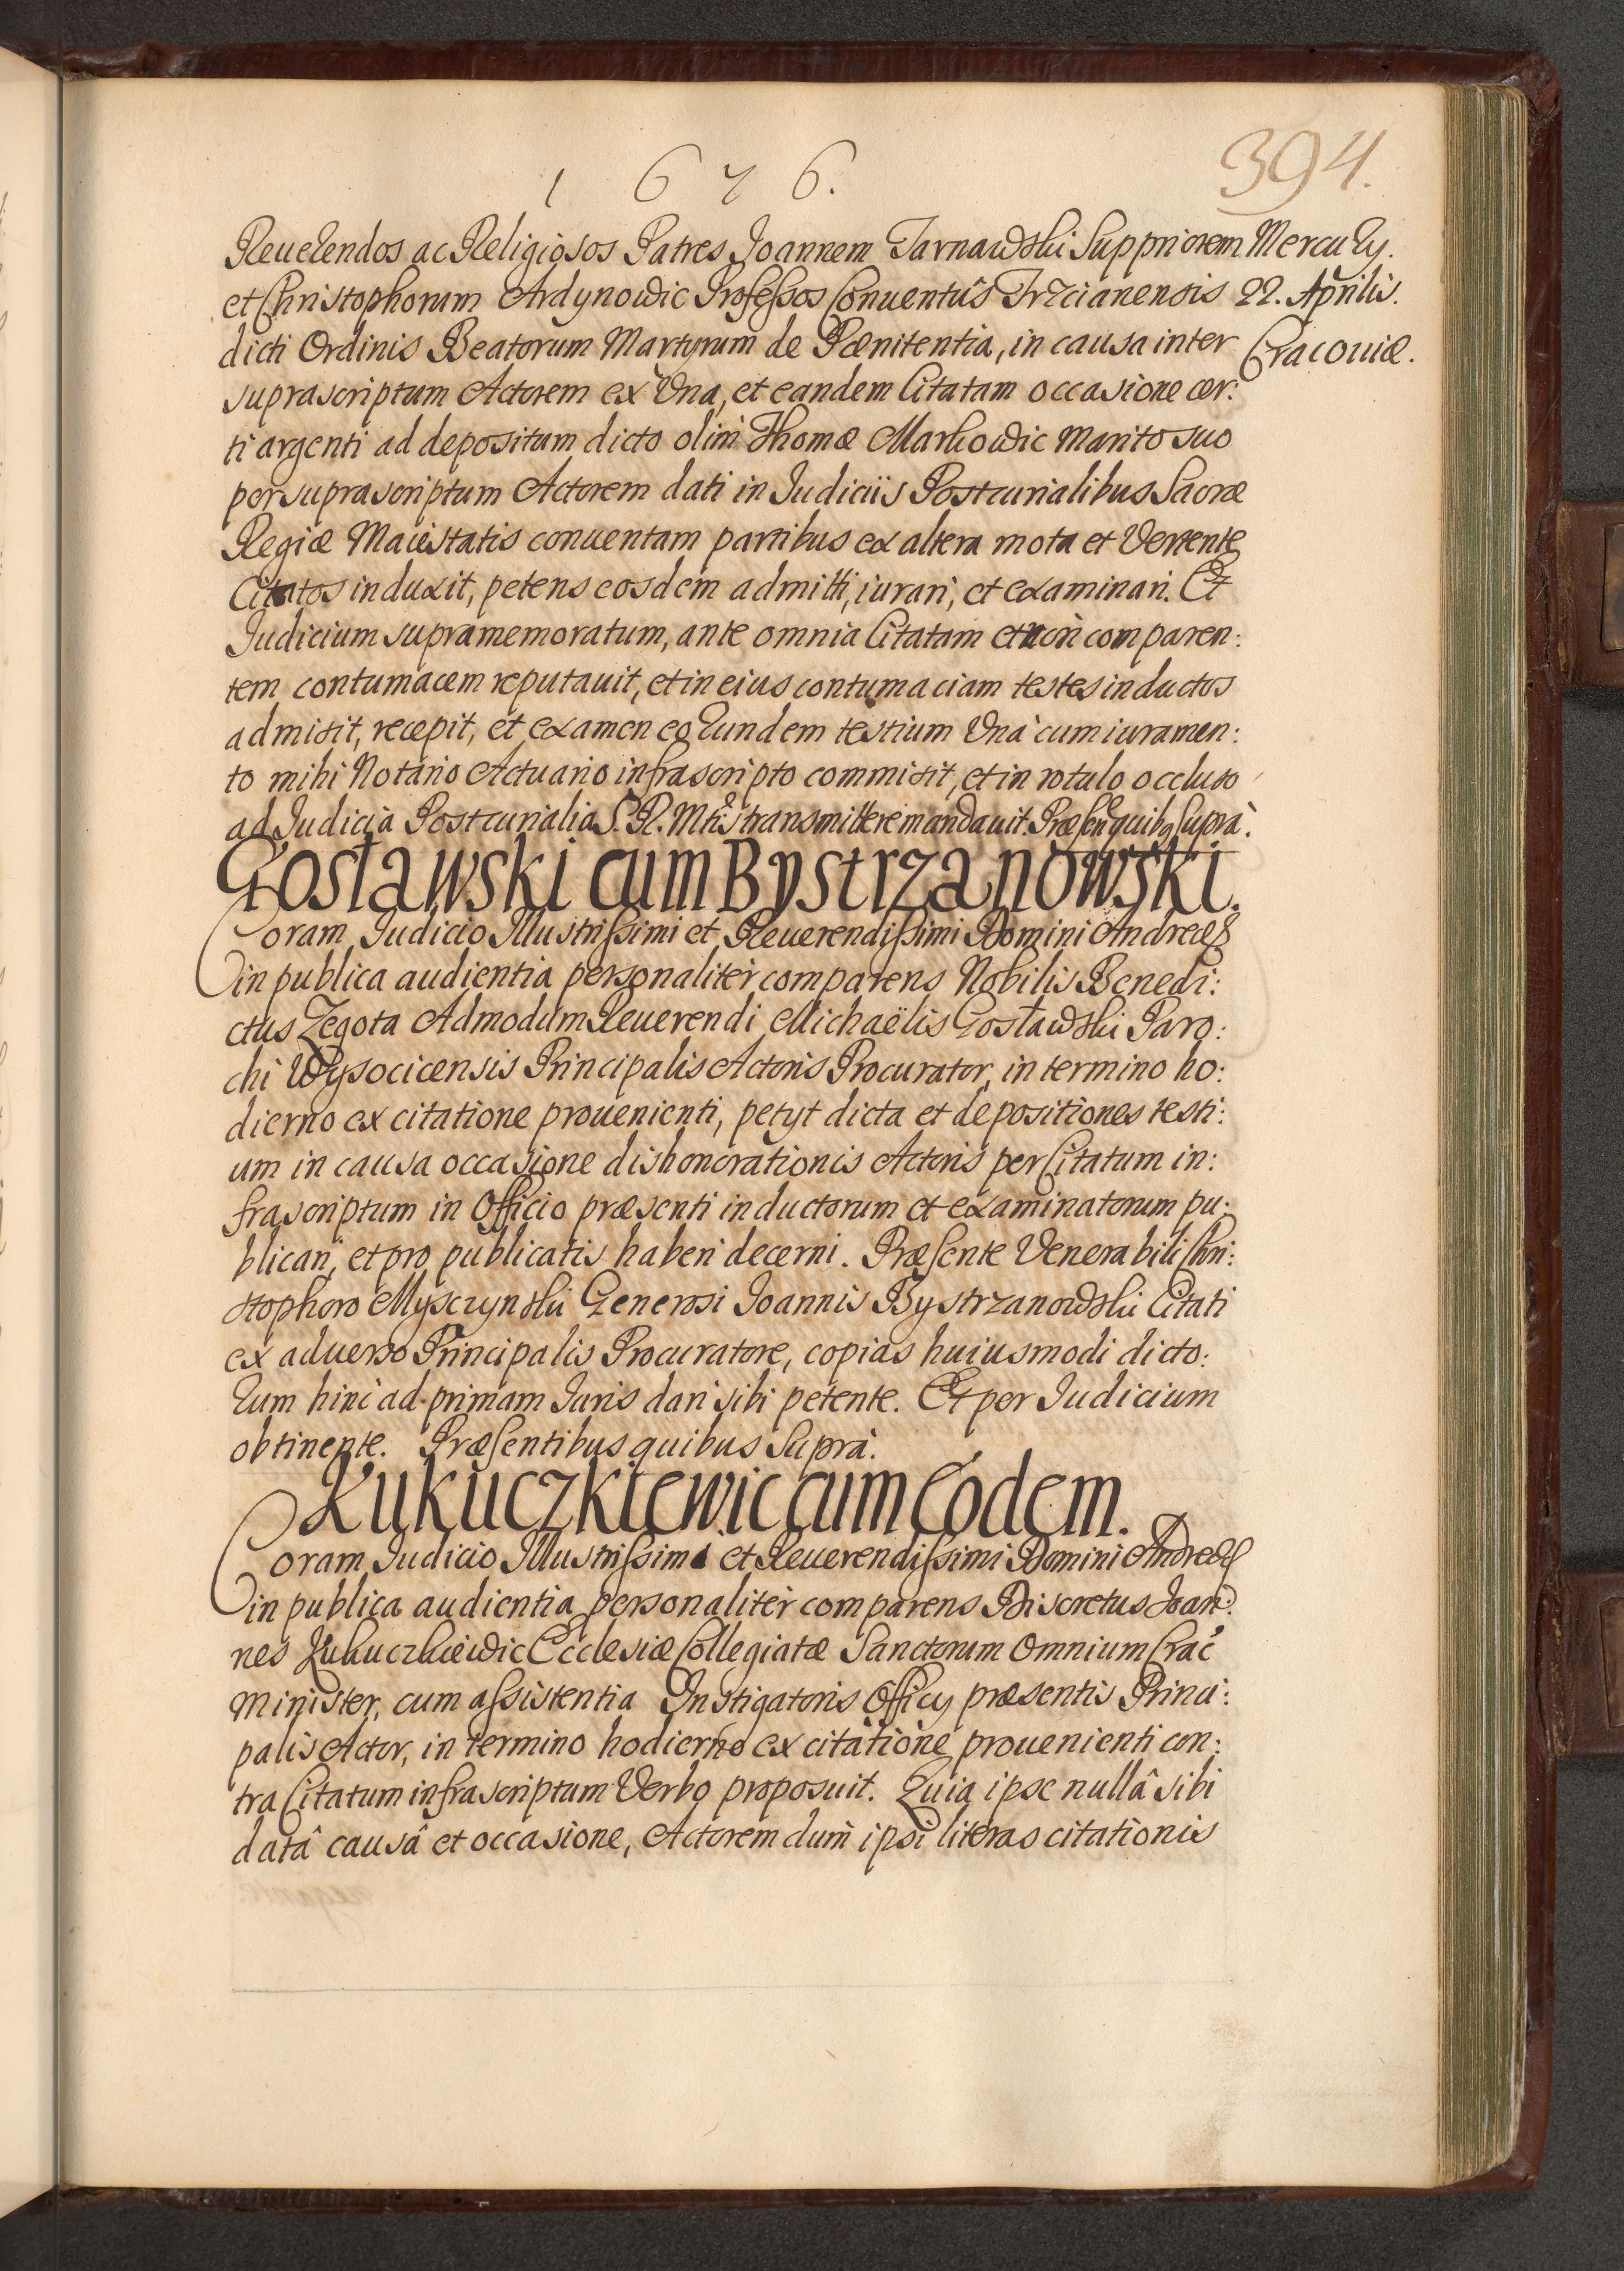 1676.
394.
Reuerendos ac Religiosos Patres Joannem Tarnawski Suppriorem
Mercurÿ.
et Christophorum Ardynowic Professos Conuentûs Trzcianensis
22. Aprilis.
dicti Ordinis Beatorum Martyrum de Pœnitentia, in causa inter
Cracouiæ.
suprascriptum Actorem ex Vna, et eandem Citatam occasione cer:
ti argenti ad depositum dicto olim Thomæ Markowic Marito suo
per suprascriptum Actorem dati in Judicijs Postcurialibus Sacræ
Regiæ Maiestatis conuentam partibus ex altera mota et Vertente
Citatos induxit, petens eosdem admitti, iurari, et examinari. Et
Judicium supramemoratum, ante omnia Citatam et non comparen:
tem contumacem reputauit, et in eius contumaciam testes inductos
admisit, recepit, et examen eorundem testium Vnà cum iuramen:
to mihi Notario Actuario infrascripto commisit, et in rotulo occluso
ad Judicia Postcurialia S. R. Mtis transmittere mandauit. Præsen quibq supra.
Gosławski cum Bystrzanowski.
Coram Judicio Illustrissimi et Reuerendissimi Domini Andreæ &
in publica audientia personaliter comparens Nobilis Benedi:
ctus Zegota Admodum Reuerendi Michaëlis Gosławski Paro:
chi Wysocicensis Principalis Actoris Procurator, in termino ho:
dierno ex citatione prouenienti, petyt dicta et depositiones testi:
um in causa occasione dishonorationis Actoris per Citatum in:
frascriptum in Officio præsenti inductorum et examinatorum pu:
blicari, et pro publicatis haberi decerni. Præsente Venerabili Chri:
stophoro Myszczynski Generosi Joannis Bystrzanowski Citati
ex aduerso Principalis Procuratore, copias huiusmodi dicto:
rum hinc ad primam Juris dari sibi petente. Et per Judicium
obtinente. Præsentibus quibus Suprà.
Kukuczkiewic cum Eodem.
Coram Judicio Illustrissimi et Reuerendissimi Domini Andreæ &
in publica audientia personaliter comparens Discretus Joan:
nes Kukuczkiewic Ecclesiæ Collegiatæ Sanctorum Omnium Crac
Minister, cum assistentia Instigatoris Officÿ præsentis Princi:
palis Actor, in termino hodierno ex citatione prouenienti con:
tra Citatum infrascriptum Verbo proposuit. Quia ipse nullâ sibi
datâ causâ et occasione, Actorem dum ipsi literas citationis